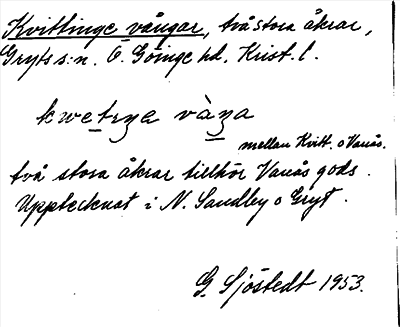 Kvittinge vångar, två stora åkrar,
Gryts s:n. Ö. Göinge hd. Krist. l.
mellan Kvitt. o Vanås.
två stora åkrar tillhör Vanås gods.
Upptecknat i N. Sandby o Gryt.
G. Sjöstedt 1953.